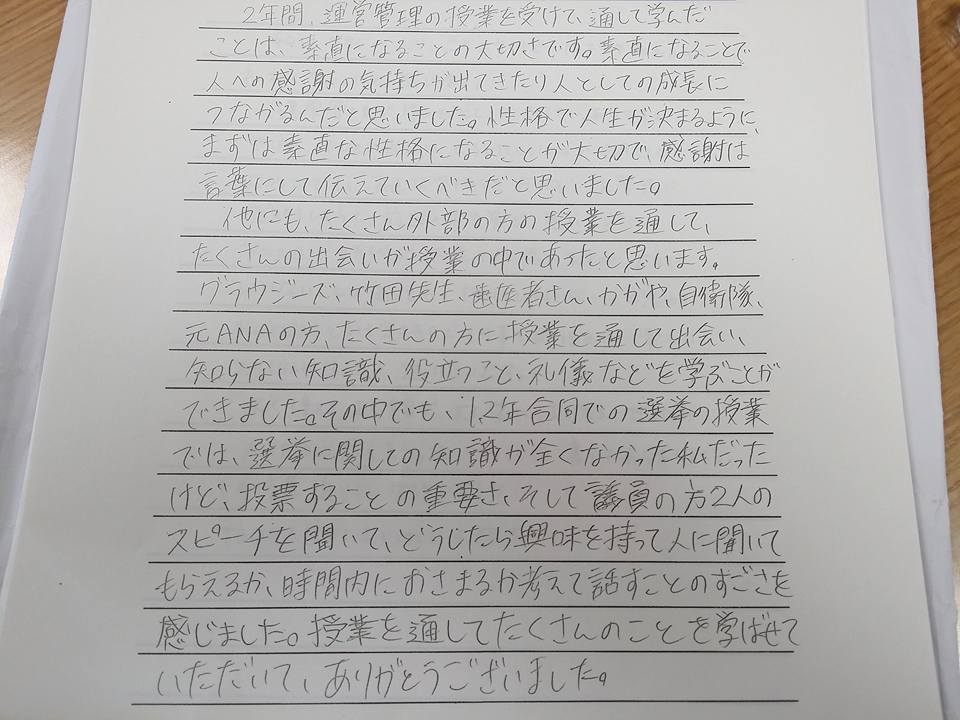 2年間、運営管理の授業を受けて、通して学んだ
ことは、素直になることの大切さです。素直になることで
人への感謝の気持ちが出てきたり人としての成長に
つながるんだと思いました。性格で人生が決まるように、
まずは素直な性格になることが大切で、感謝は
言葉にして伝えていくべきだと思いました。
他にも、たくさん外部の方の授業を通して、
たくさんの出会いが授業の中であったと思います。
グラウジーズ、竹田先生、歯医者さん、かがや、自衛隊、
元ANAの方、たくさんの方に授業を通して出会い、
知らない知識、役立つこと、礼儀などを学ぶことが
できました。その中でも、1.2年合同での選挙の授業
では、選挙に関しての知識が全くなかった私だった
けど、投票することの重要さ、そして議員の方2人の
スピーチを聞いて、どうしたら興味を持って人に聞いて
もらえるか、時間内におさまるか考えて話すことのすごさを
感じました。授業を通してたくさんのことを学ばせて
いただいて、ありがとうございました。